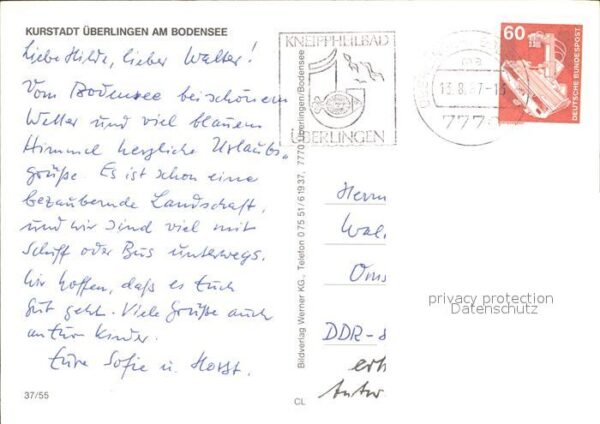 KURSTADT ÜBERLINGEN AM BODENSEE
Liebe Hilde, lieber Walter!
Vom Bodensee bei schönem
Wetter und viel blauem
Himmel herzliche Urlaubs-
grüße. Es ist schon eine
bezaubernde Landschaft,
und wir sind viel mit
Schiff oder Bus unterwegs.
Wir hoffen, daß es Euch
gut geht. Viele Grüße auch
an Eure Kinder.
Eure Sofie u. Horst.
37/55
CL
Bildverlag Werner KG., Telefon 0 75 51/6 19 37, 7770 Überlingen/Bodensee
KNEIPPHEILBAD
ÜBERLINGEN
13.8.87-15
777
60
DEUTSCHE BUNDESPOST
Herrn
Wal
DDR-
privacy protection
Datenschutz